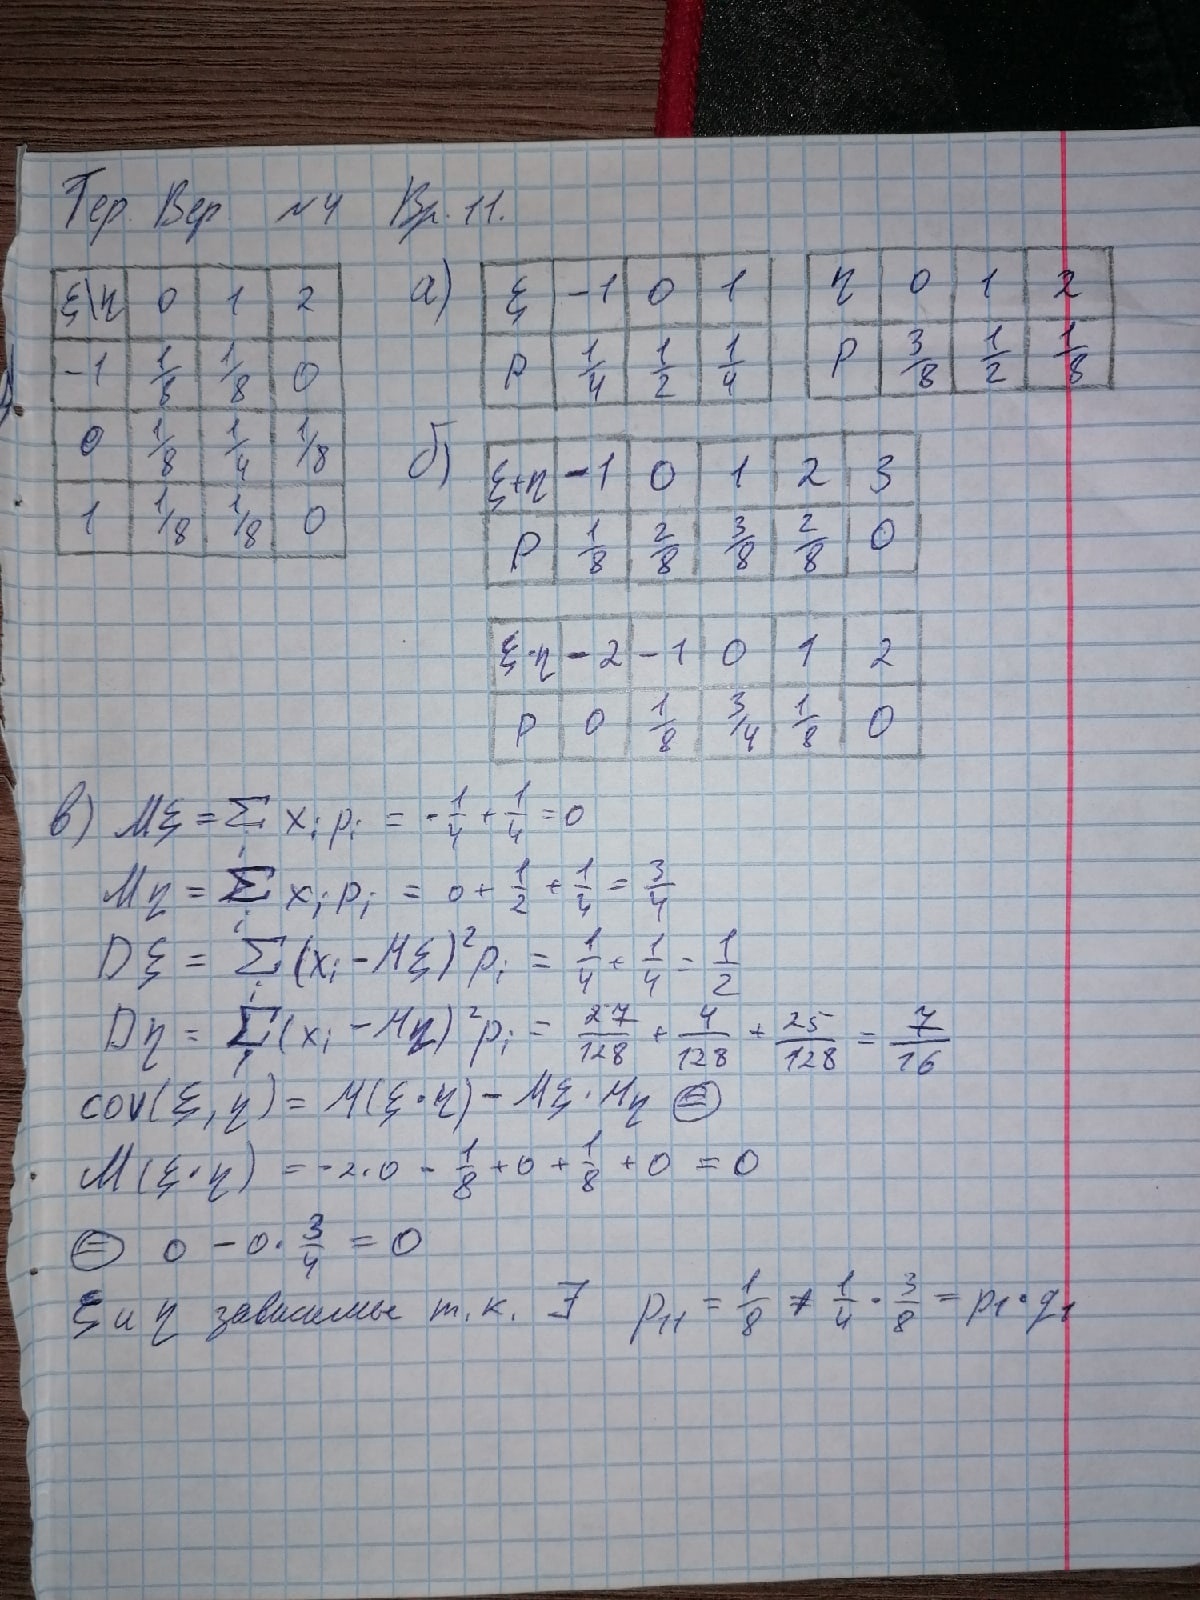 Тер. Вер. №4 Вр. 11.
ξ\η 0 1 2
-1 1/8 1/8 0
0 1/8 1/4 1/8
1 1/8 1/8 0
а) ξ -1 0 1
p 1/4 1/2 1/4
η 0 1 2
p 3/8 1/2 1/8
б) ξ+η -1 0 1 2 3
p 1/8 2/8 3/8 2/8 0
ξ·η -2 -1 0 1 2
p 0 1/8 3/4 1/8 0
в) Mξ = Σ_i x_i p_i = -1/4 + 1/4 = 0
Mη = Σ_i x_i p_i = 0 + 1/2 + 1/4 = 3/4
Dξ = Σ_i (x_i - Mξ)² p_i = 1/4 + 1/4 = 1/2
Dη = Σ_i (x_i - Mη)² p_i = 27/128 + 4/128 + 25/128 = 7/16
cov(ξ, η) = M(ξ·η) - Mξ · Mη ⊜
M(ξ·η) = -2·0 - 1/8 + 0 + 1/8 + 0 = 0
⊜ 0 - 0 · 3/4 = 0
ξ и η зависимые т.к. ∃ p₁₁ = 1/8 ≠ 1/4 · 3/8 = p₁ · q₁